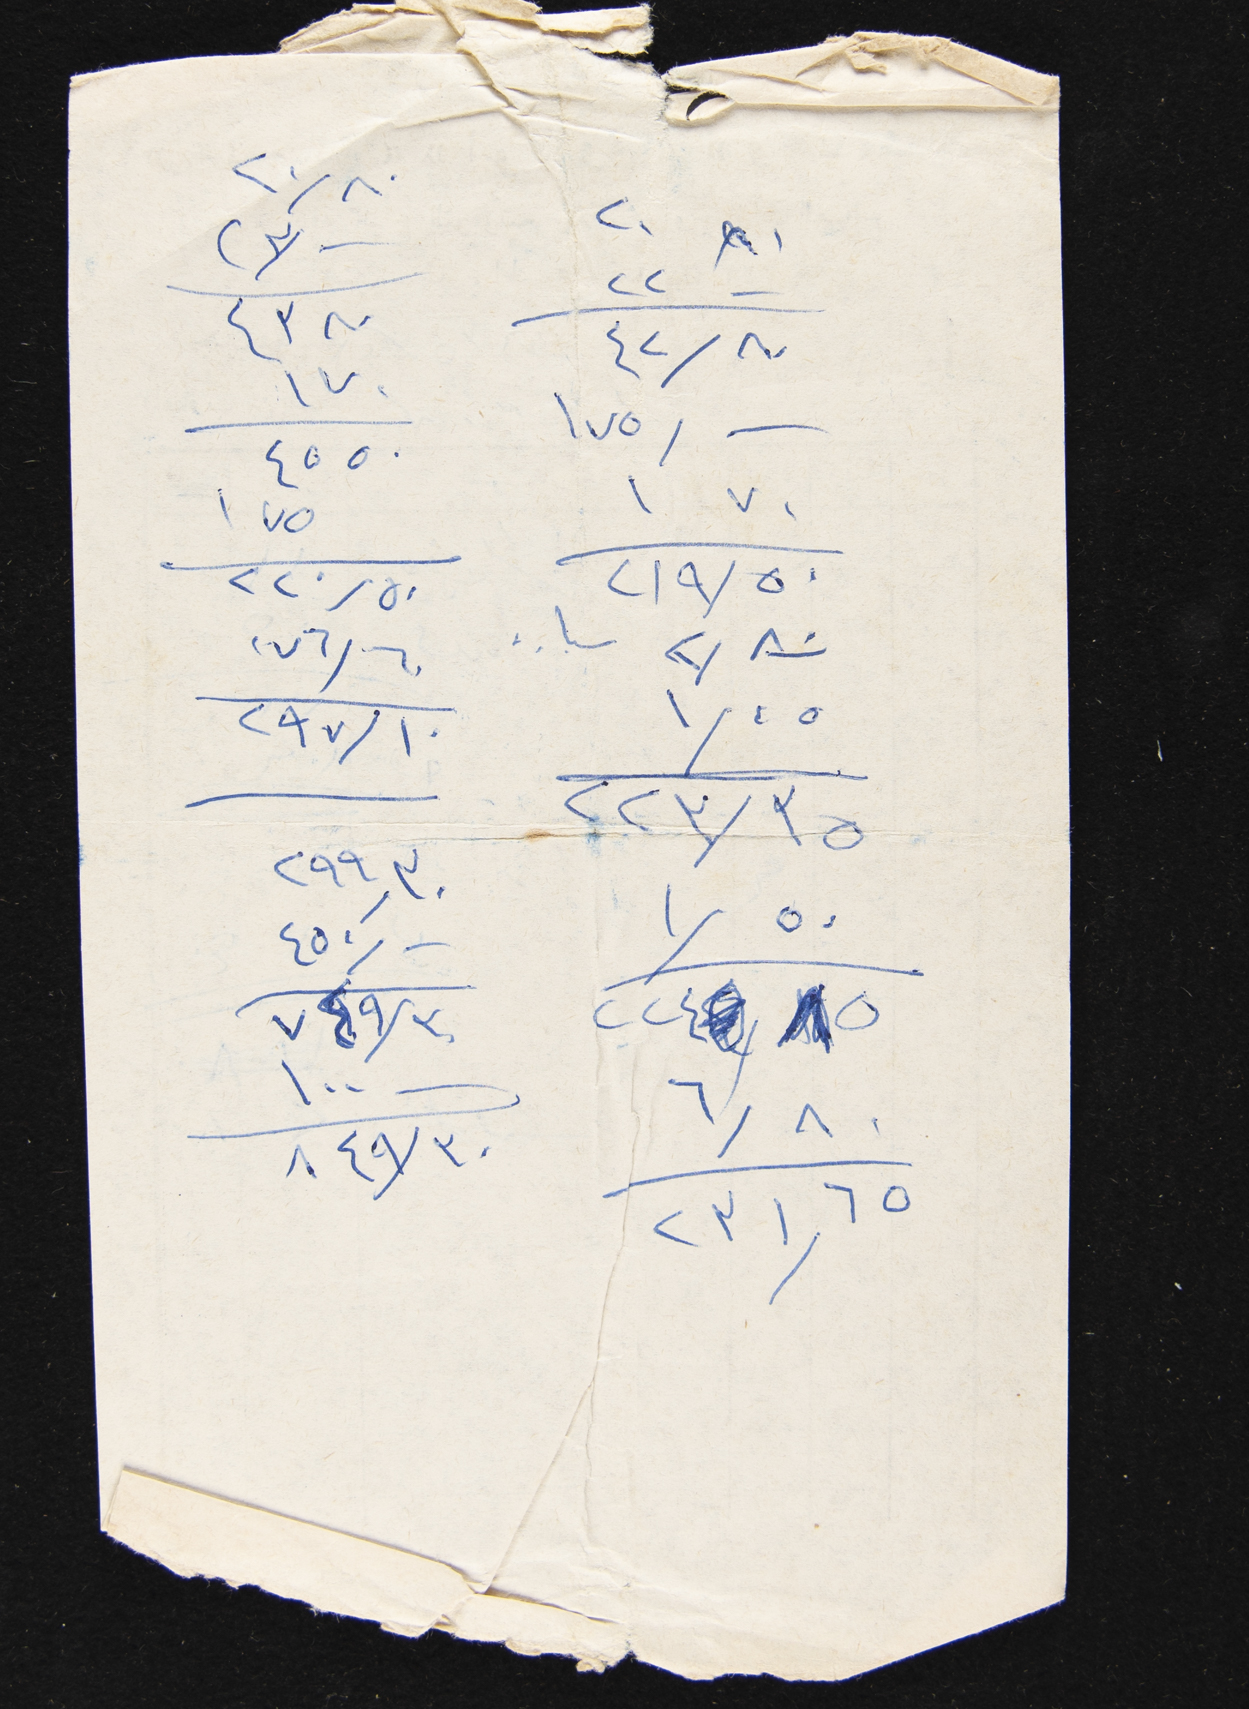 ٢٠/٨٠
٢٣/—
٤٣ ٨٠
١ ٧٠
٤٥ ٥٠
١٧٥
٢٢٠/٥٠
٧٦/٦٠
٢٩٧/١٠
٢٩٩/٣٠
٤٥٠/—
٧٤٩/٣٠
١٠٠ —
٨٤٩/٣٠
٢٠ ٨٠
٢٢ —
٤٢/٨٠
١٧٥/—
١ ٧٠
٢١٩/٥٠
٢/٨٠
١/٤٥
٢٢٣/٣٥
١/٥٠
٢٢٤/ ٥
٦/٨٠
٢٣١/٦٥